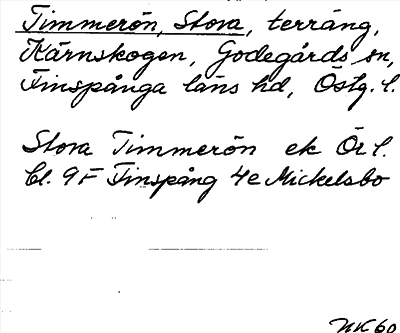 Timmerön, Stora, terräng,
Kärnskogen, Godegårds sn,
Finspånga läns hd, Östg. l.
Stora Timmerön ek Ör l.
bl. 9F Finspång 4e Mickelsbo
NK 60